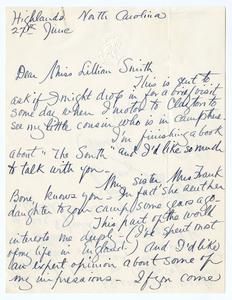 Highlands North Carolina
27th June
Dear Miss Lillian Smith
This is sent to
ask if I might drop in for a brief visit
some day when I motor to Clayton to
see my little cousin who is in camp here.
I'm finishing a book
about "The South" and I'd like so much
to talk with you.
My sister, Mrs Frank
Bone, knows you - In fact she sent her
daughter to your camp some years ago -
This part of the world
interests me deeply (I've spent most
of my life in it) and I'd like
an expert opinion about some of
my impressions. If you come